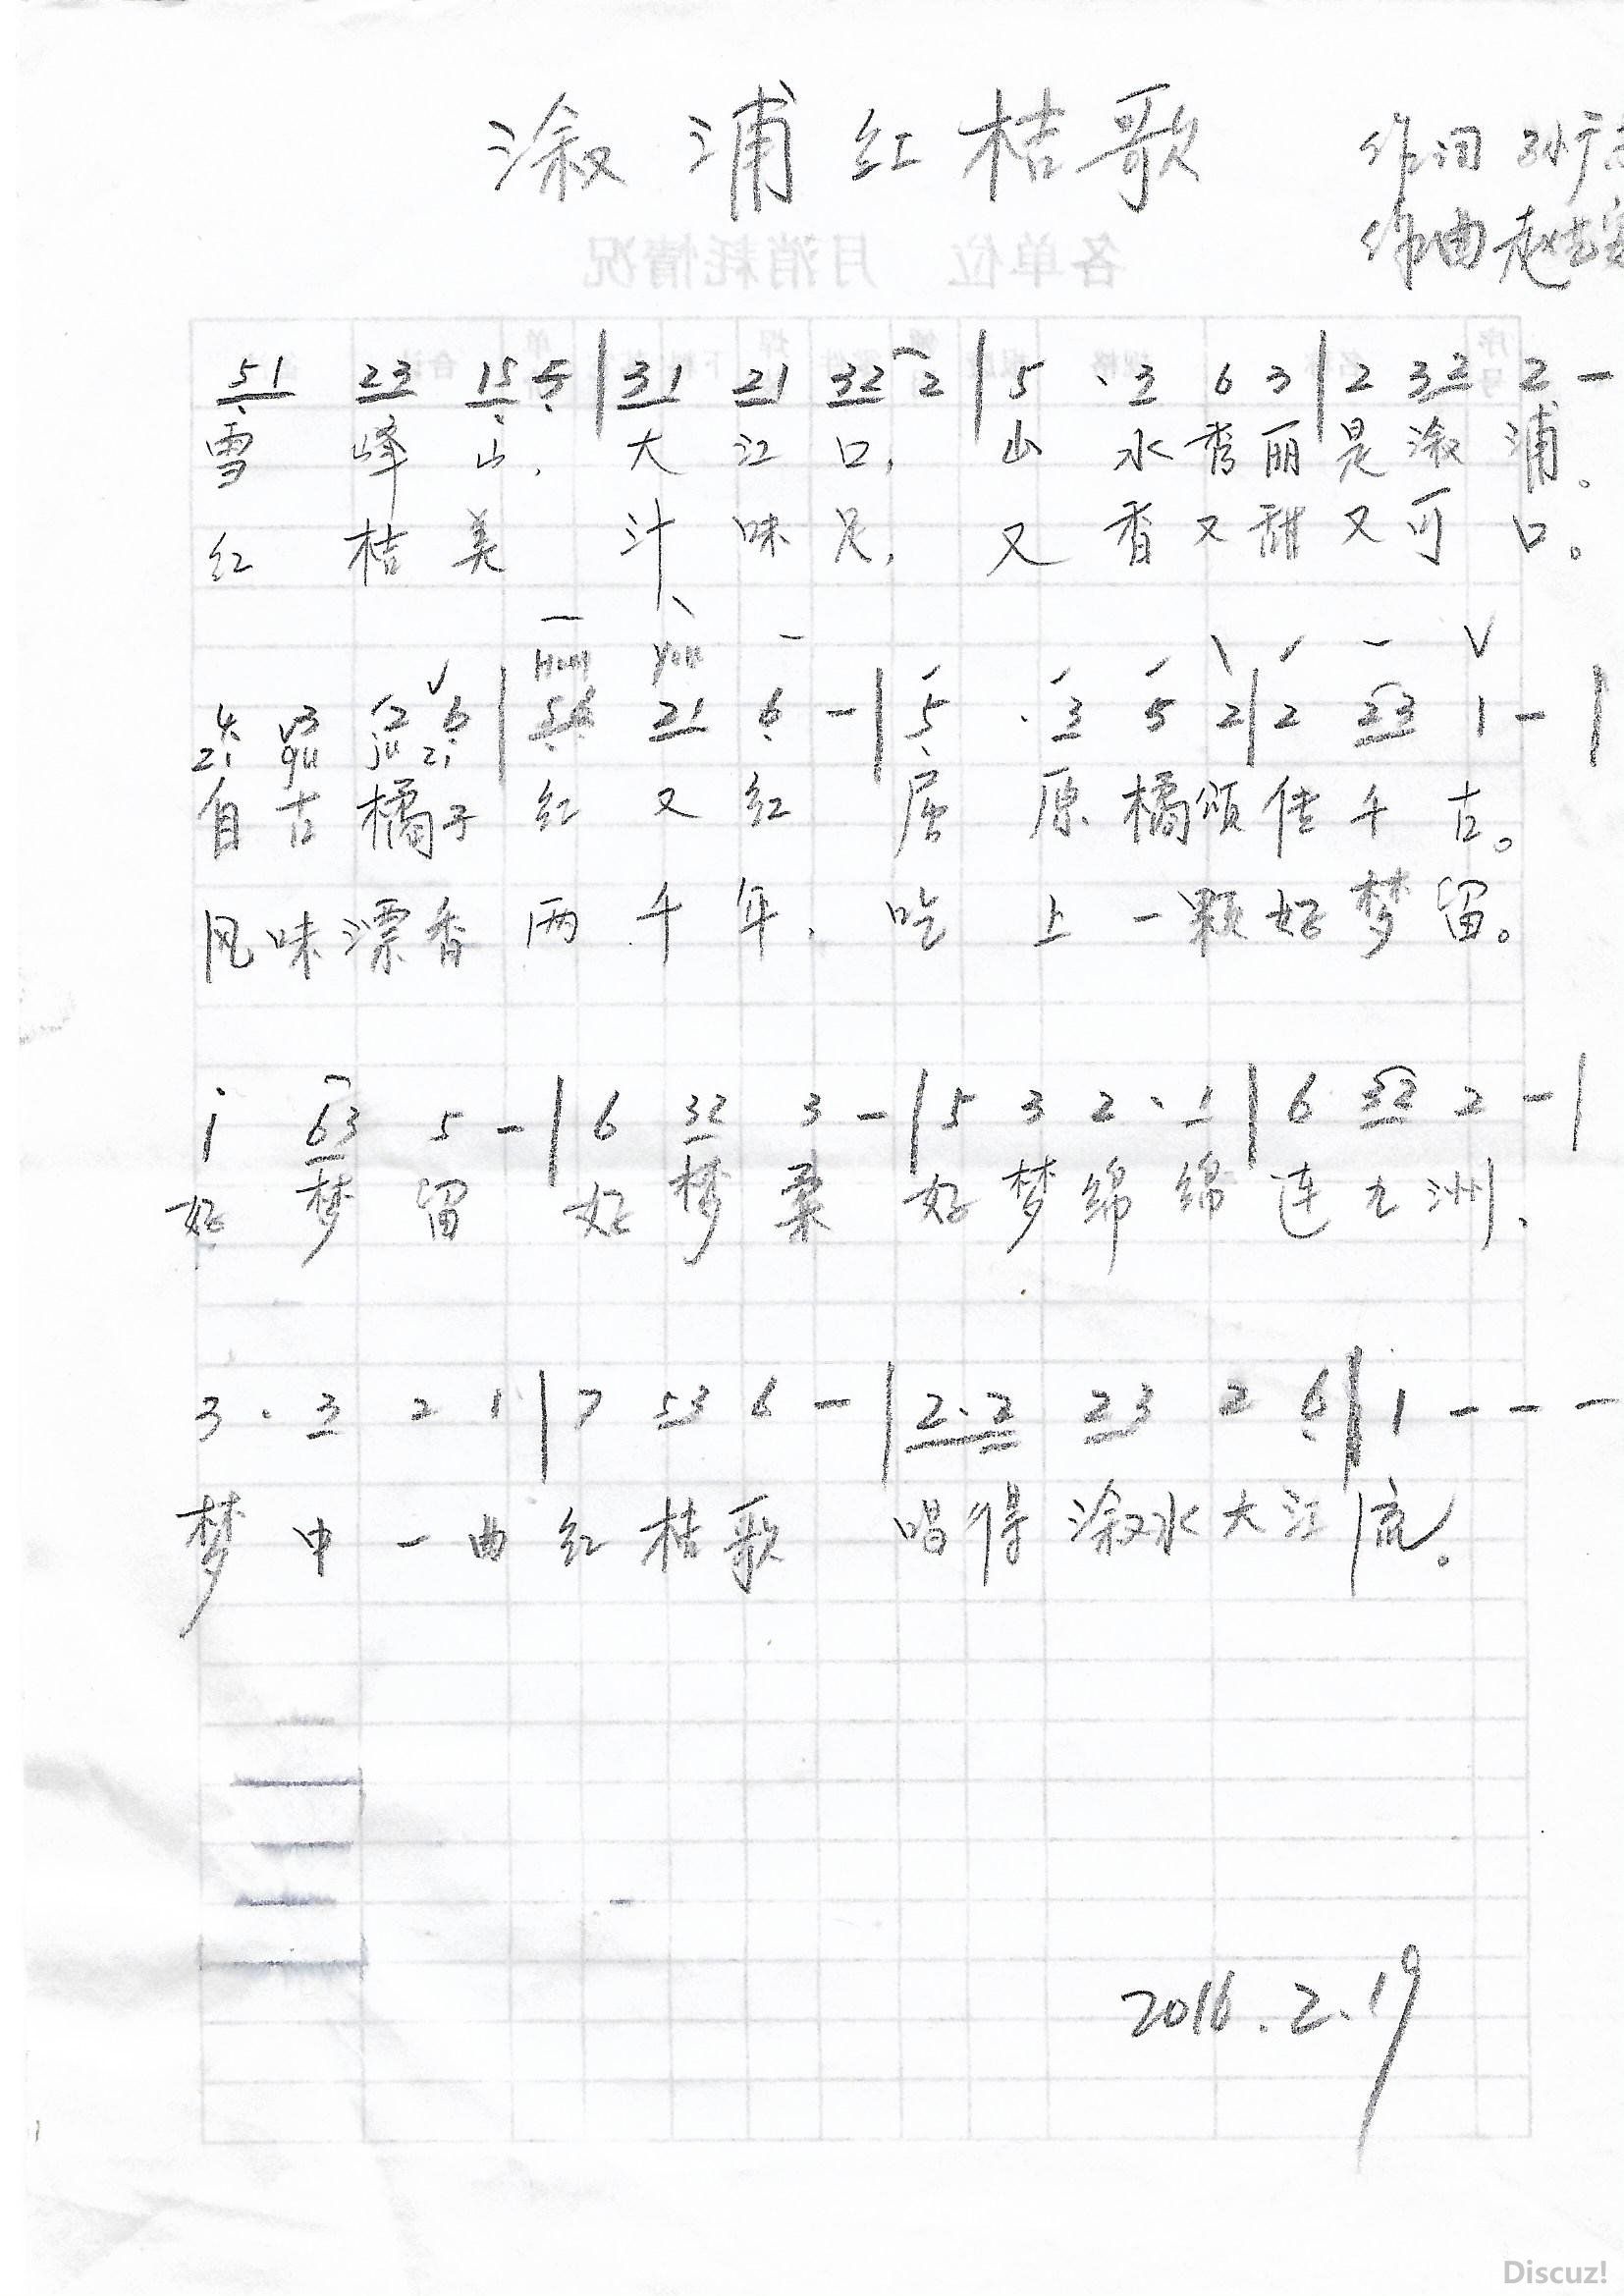 溆浦红桔歌
作词 孙广
作曲 赵
各单位 月消耗情况
51 23 15 5 | 31 21 32 2 | 5 · 3 6 3 | 2 32 2 -
雪峰山,大江口,山水秀丽是溆浦。
红桔美 汁味足,又香又甜又可口。
Hong you
4 3 2 6 | 56 21 6 - | 5 · 3 5 2 | 2 23 1 - |
zi gu ju zi
自古橘子红又红 屈原橘颂传千古。
风味漂香两千年,吃上一颗好梦留。
i 63 5 - | 6 32 3 - | 5 3 2 · 1 | 6 32 2 - |
好梦留 好梦柔 好梦绵绵连九洲、
3 · 3 2 1 | 7 53 6 - | 2·2 23 2 6 | 1 - - -
梦中一曲红桔歌 唱得溆水大江流。
2016.2.19
Discuz!